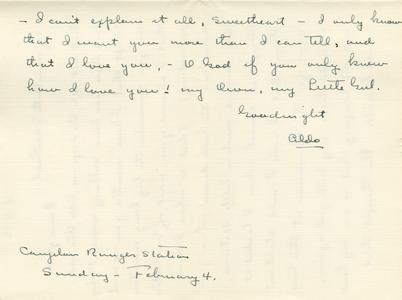 - I can't explain it all, Sweetheart - I only know
that I want you more than I can tell, and
that I love you, - O God if you only knew
how I love you! my Own, my Little Girl.
Goodnight
Aldo
Ranger Station
Sunday - February 4.